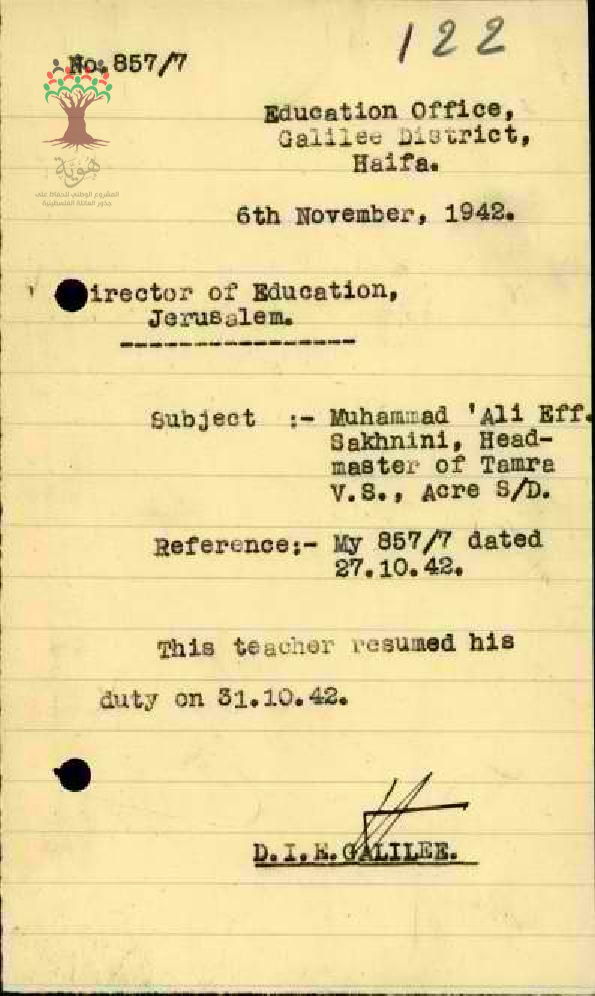 122
No. 857/7
هوية
المشروع الوطني للحفاظ على
جذور العائلة الفلسطينية
Education Office,
Galilee District,
Haifa.
6th November, 1942.
irector of Education,
Jerusalem.
Subject :- Muhammad 'Ali Eff.
Sakhnini, Head-
master of Tamra
V.S., Acre S/D.
Reference:- My 857/7 dated
27.10.42.
This teacher resumed his
duty on 31.10.42.
D.I.E. GALILEE.